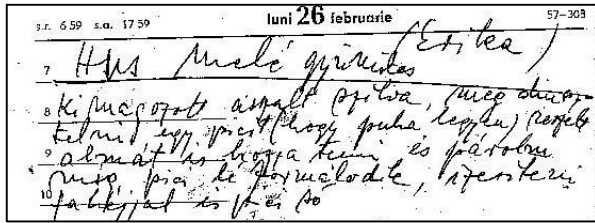 s.r. 6 59 s.a. 17 59 luni 26 februarie 57-308
(Erika)
7 Hús mellé gyümölcs
8 Kimagozott aszalt szilva, meg
egy picit (hogy puha legyen) reszelt
9 almát is hozzá tenni és párolni
míg pici le formálódik, ízesíteni
10 fahéjjal és pici só